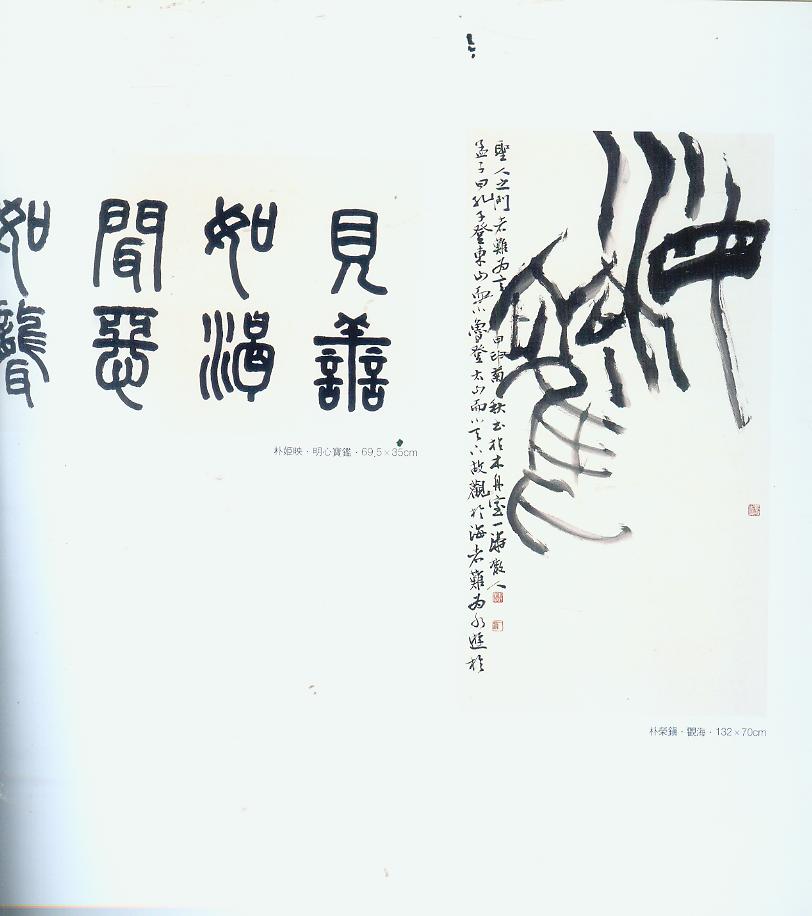 見善
如渴
聞惡
如聾
朴姬映・明心寶鑑・69.5×35cm
觀海
孟子曰孔子登東山而小魯登太山而小天下故觀於海者難為水遊於
聖人之門者難為言 甲申菊秋書於木舟室一濤散人
朴榮鎭・觀海・132×70cm